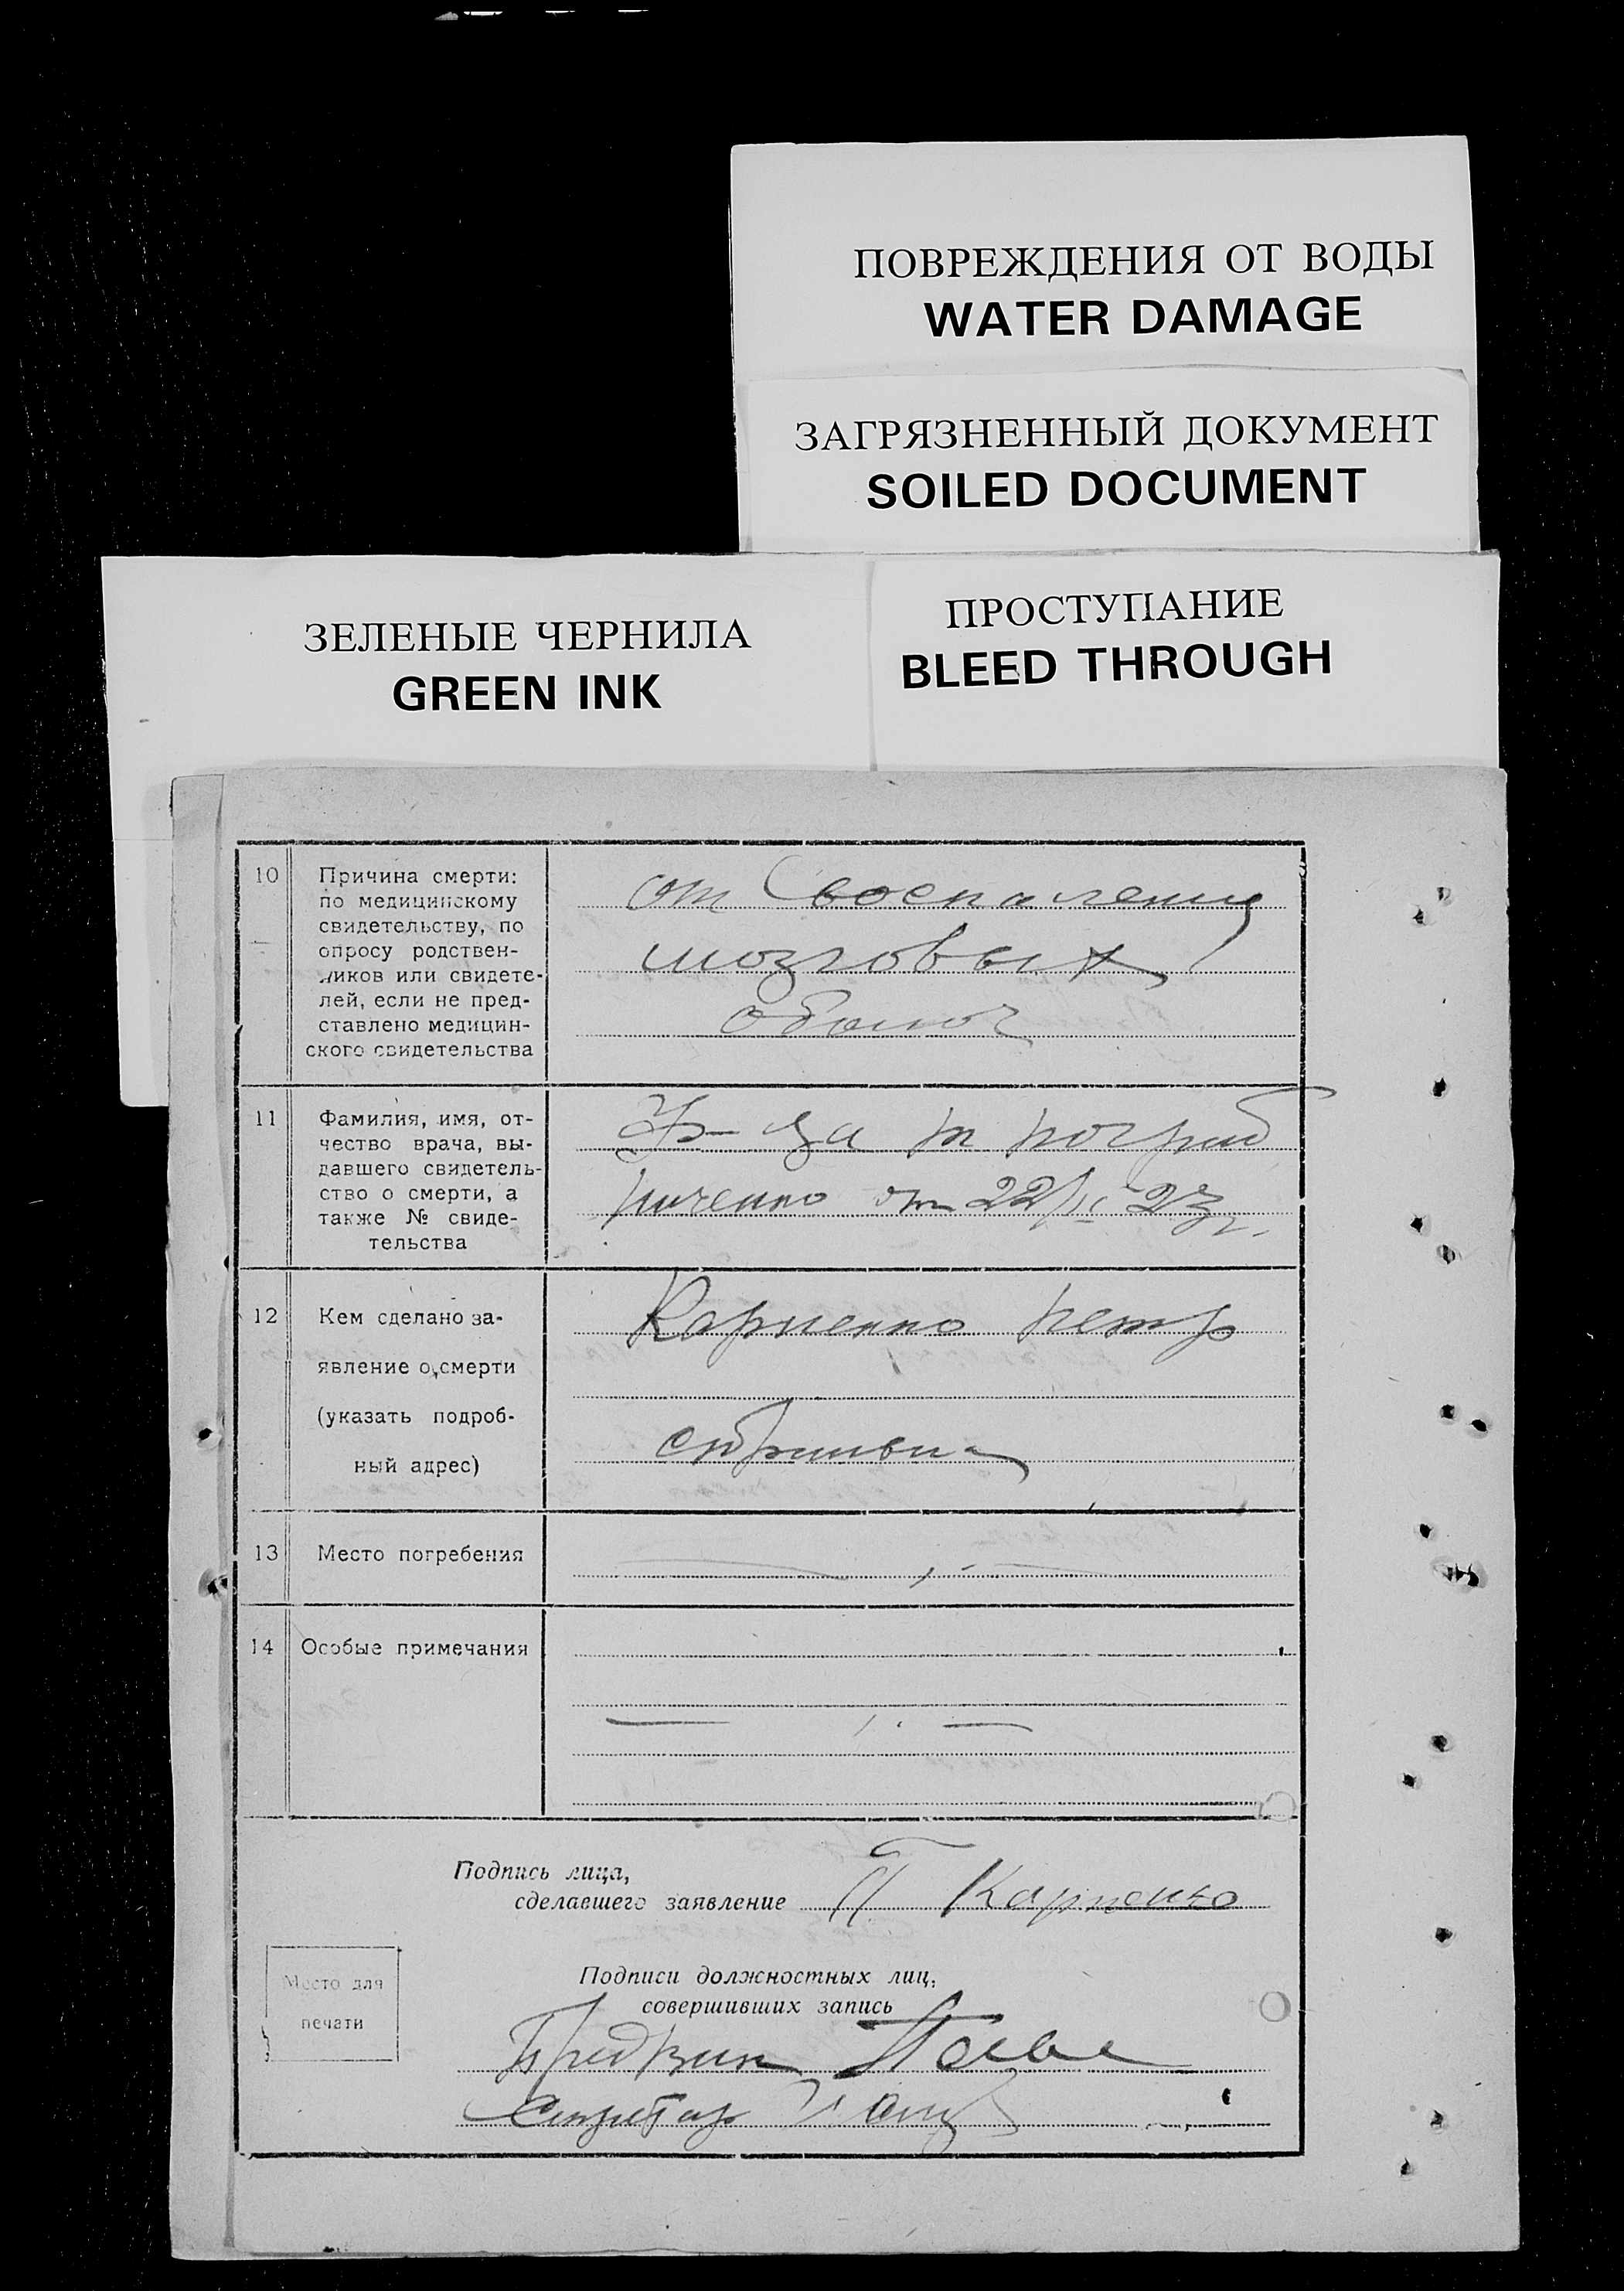 ПОВРЕЖДЕНИЯ ОТ ВОДЫ
WATER DAMAGE
ЗАГРЯЗНЕННЫЙ ДОКУМЕНТ
SOILED DOCUMENT
ЗЕЛЕНЫЕ ЧЕРНИЛА
GREEN INK
ПРОСТУПАНИЕ
BLEED THROUGH
10
Причина смерти:
по медицинскому
свидетельству, по
опросу родствен-
ников или свидете-
лей, если не пред-
ставлено медицин-
ского свидетельства
от воспаления
мозговых
11
Фамилия, имя, от-
чество врача, вы-
давшего свидетель-
ство о смерти, а
также № свиде-
тельства
от 22
12
Кем сделано за-
явление о смерти
(указать подроб-
ный адрес)
Карпенко Петр
13
Место погребения
14
Особые примечания
Подпись лица,
сделавшего заявление
П Карпенко
Место для
печати
Подписи должностных лиц,
совершивших запись
Секретар